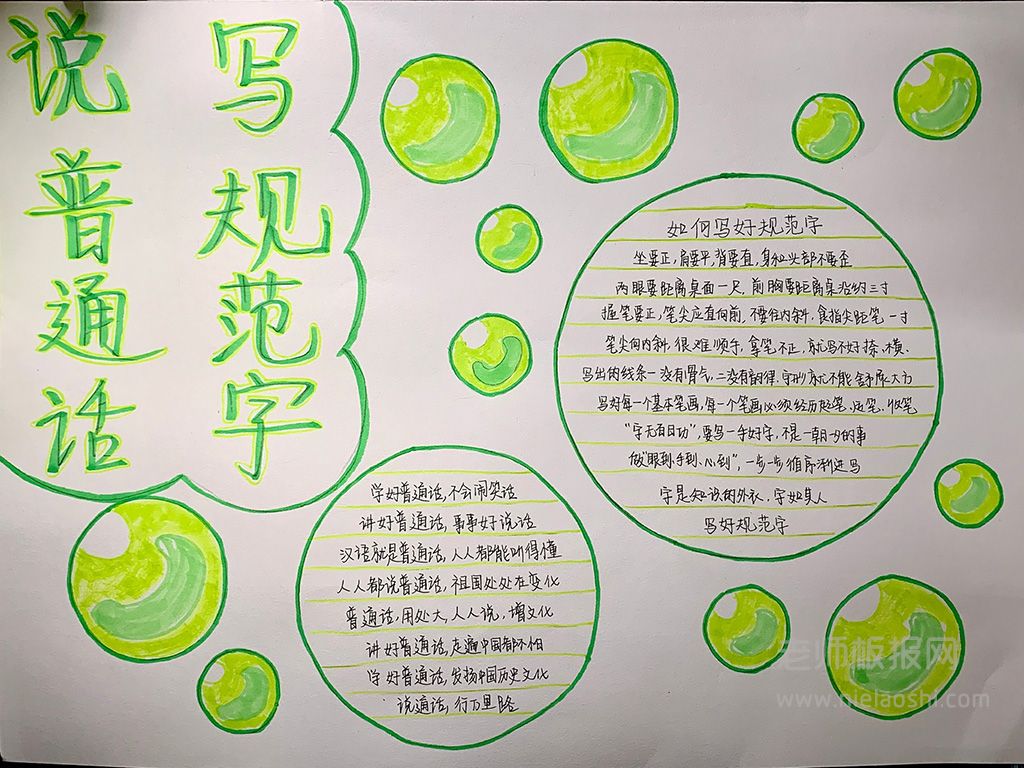 说普通话
写规范字
如何写好规范字
坐要正,肩要平,背要直,身和头部不要歪
两眼要距离桌面一尺,前胸要距离桌沿约三寸
握笔要正,笔尖应直向前,不要往内斜,食指尖距笔一寸
笔尖向内斜,很难顺手,拿笔不正,就写不好捺、横、
写出的线条一没有骨气,二没有韵律,字形就不能舒展大方
写好每一个基本笔画,每一个笔画必须经历起笔、运笔、收笔
“字无百日功”,要写一手好字,不是一朝一夕的事
做“眼到、手到、心到”,一步一步循序渐进写
字是知识的外衣,字如其人
写好规范字
学好普通话,不会闹笑话
讲好普通话,事事好说话
汉语就是普通话,人人都能听得懂
人人都说普通话,祖国处处在变化
普通话,用处大,人人说,增文化
讲好普通话,走遍中国都不怕
学好普通话,发扬中国历史文化
说通话,行万里路
老师板报网
www.nielaoshi.com